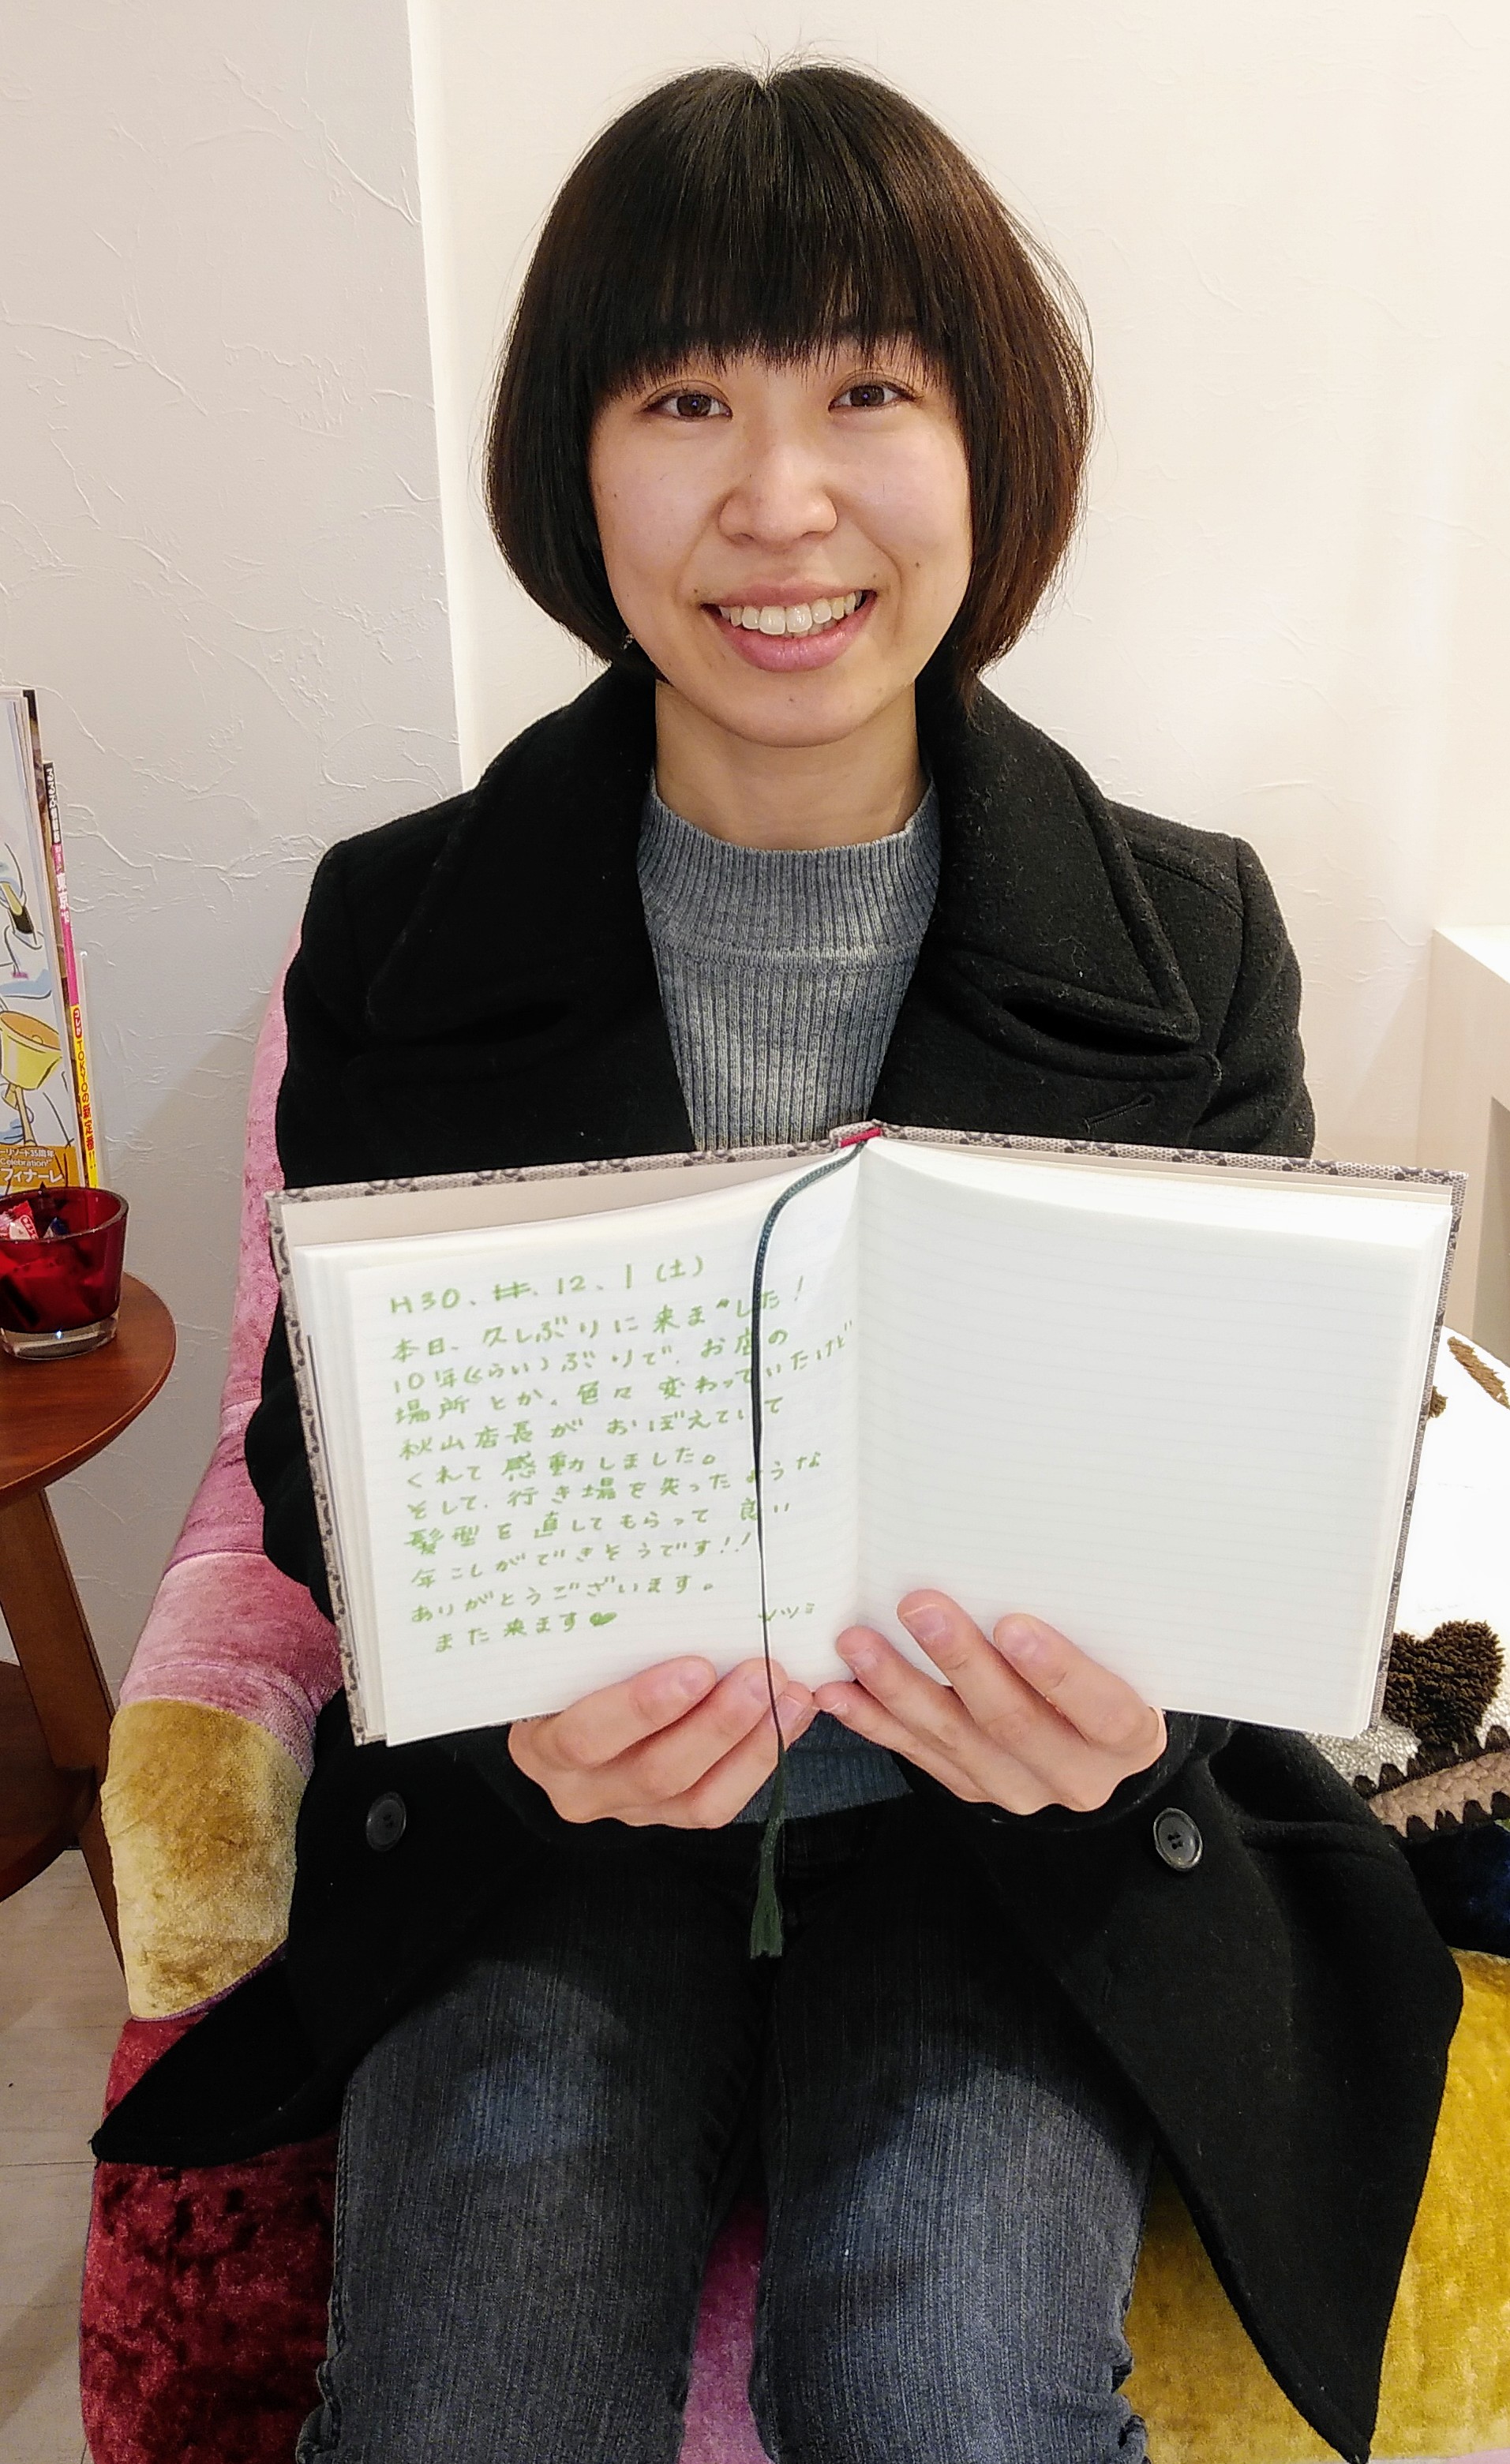 H30. 12. 1 (土)
本日、久しぶりに来ました!
10年(くらい)ぶりで、お店の
場所とか、色々変わっていたけど
秋山店長がおぼえていて
くれて感動しました。
そして、行き場を失ったような
髪型を直してもらって良い
年こしができそうです!!
ありがとうございます。
また来ます
ツツミ
TOKYOの新定番
リゾート35周年
Celebration!"
フィナーレ